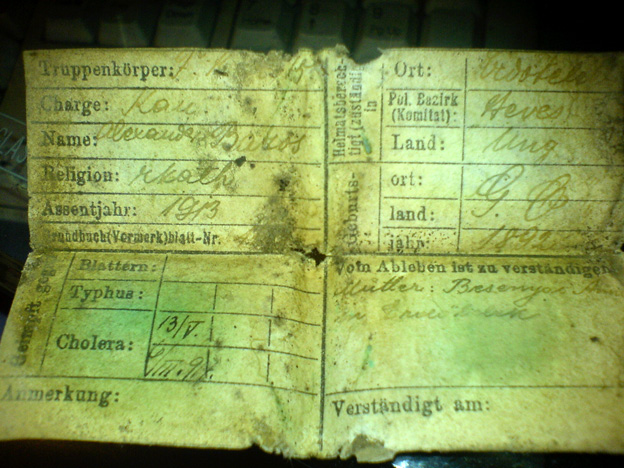 Truppenkörper:
Charge:
Name: Alexander Baros
Religion: rkath
Assentjahr: 1913
Grundbuch(Vormerk)blatt-Nr.
Heimatsberech-
tigt (zuständig)
in
Ort:
Pol. Bezirk
(Komitat): Heves
Land: Ung
Geburts-
ort:
land:
jahr: 1892
Geimpft geg.
Blattern:
Typhus:
Cholera: 13/V.
Anmerkung:
Vom Ableben ist zu verständigen
Mutter: Besenyei
Verständigt am: